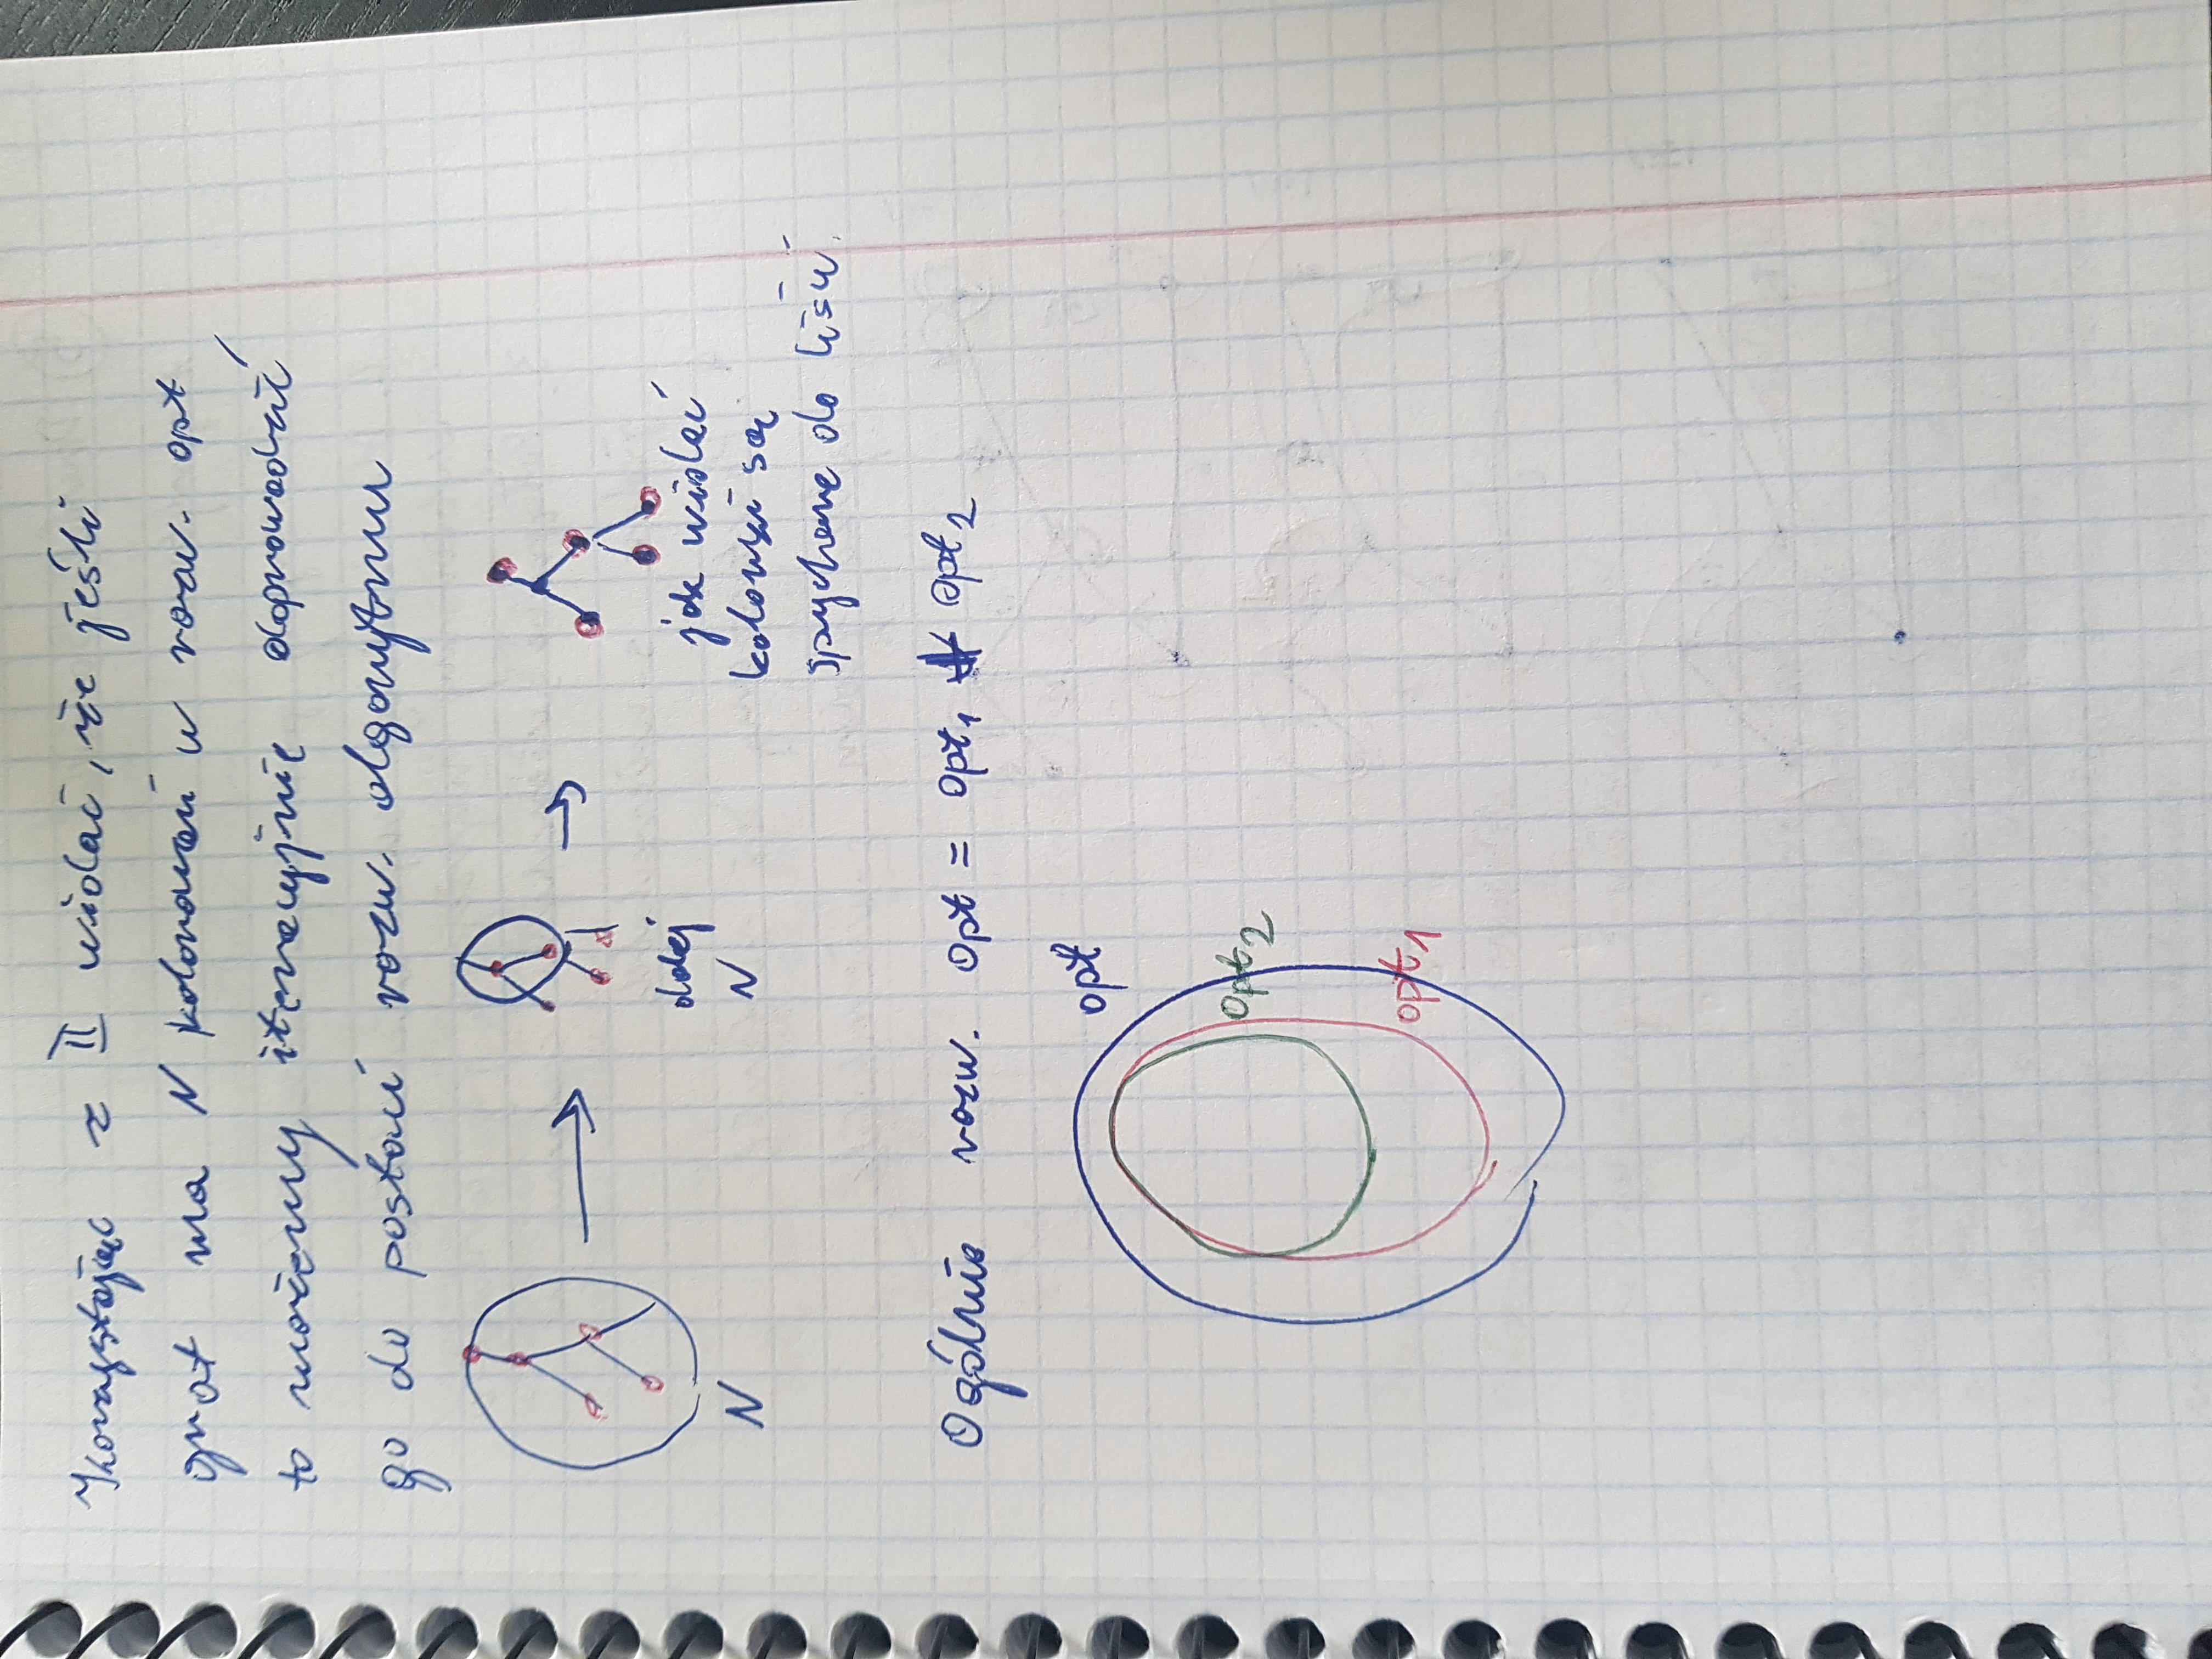 Korzystając z II widać, że jeśli
graf ma N kolorowań w rozw. opt
to możemy iteracyjnie doprowadzić
go do postaci rozw. algorytmu
N
dalej
N
jak widać
kolorki są
spychane do liści.
Ogólnie rozw. opt = opt1 opt2
opt
opt2
opt1